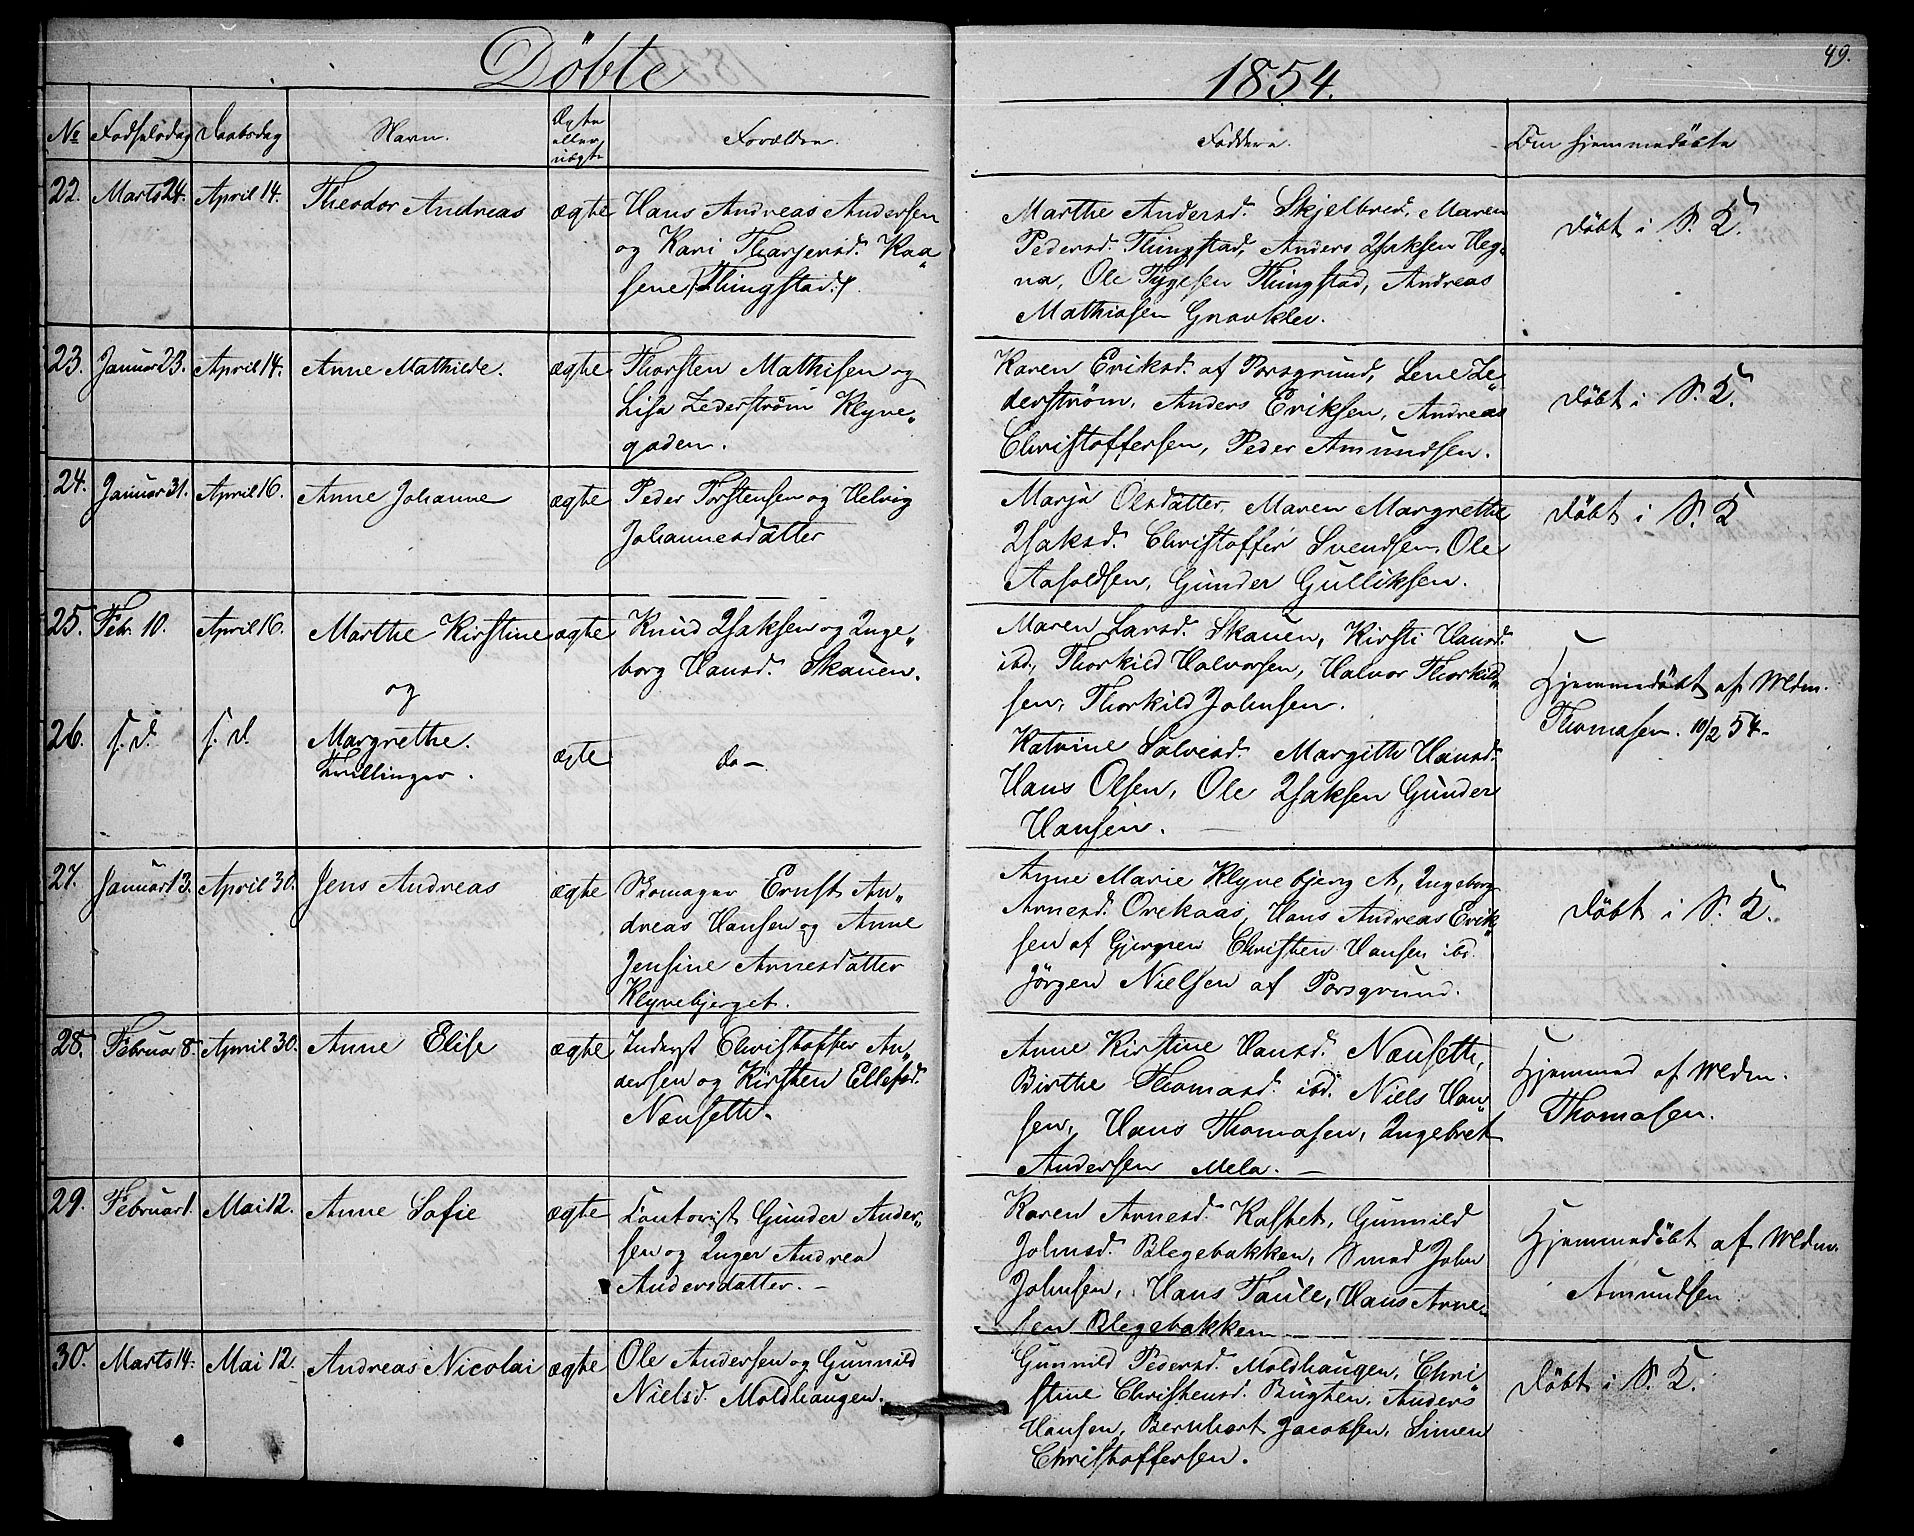 Döbte
1854.
49.
No Fødselsdag Daabsdag Navn. Ægte eller uægte Forældre. Faddere. Om hjemmedöbte
22. Marts 24. April 14. Theodor Andreas ægte Hans Andreas Andersen
og Kari Tharjersd. Kaa„
sene /:Thingstad:/.
Marthe Andersd. Skjelbred, Maren
Pedersd. Thingstad, Anders Isaksen Heg„
na, Ole Tygesen Thingstad, Andreas
Mathiasen Gravklev.
Döbt i P. K.
23. Januar 23. April 14. Anne Mathilde. ægte Thorsten Mathisen og
Lisa Zederstrøm Klyve„
gaden.
Karen Eriksd. af Porsgrund, Lene Ze„
derström, Anders Eriksen, Andreas
Christoffersen, Peder Amundsen.
Döbt i P. K.
24. Januar 31. April 16. Anne Johanne ægte Peder Torstensen og Helvig
Johannesdatter
Marja Olsdatter, Maren Margrethe
Isaksd. Christoffer Svendsen, Ole
Aasoldsen, Gunder Gulliksen.
Döbt i P. K
25. Febr. 10. April 16. Marthe Kirstine ægte Knud Isaksen og Inge„
borg Hansd. Skauen.
og
Maren Larsd. Skauen, Kirsti Hansd.
ibd., Thorkild Halvorsen, Halvor Thorkild„
sen, Thorkild Johnsen.
Hjemmedöbt af Medm.
Thomasen. 10/2 54.
26. s. d. s. d. Margrethe.
Tvillinger. ægte do
Katrine Salvesd. Margithe Hansd.
Hans Olsen, Ole Isaksen Gunder
Hansen.
27. Januar 13. April 30. Jens Andreas ægte Skomager Ernst An„
dreas Hansen og Anne
Jensine Arnesdatter
Klyvebjerget.
Anne Marie Klyvebjerg et, Ingeborg
Arnesd. Orekaas, Hans Andreas Erik„
sen af Gjerpen Christen Hansen ibd.
Jörgen Nielsen af Porsgrund.
Döbt i P. K.
28. Februar 8. April 30. Anne Elise ægte Inderst Christoffer An„
dersen og Kirsten Ellefsd.
Nænseth.
Anne Kirstine Hansd. Nænseth,
Birthe Thomasd. ibd. Niels Han„
sen, Hans Thomasen, Ingebret
Andersen Mela.
Hjemmed af Medm.
Thomasen.
29. Februar 1. Mai 12. Anne Sofie ægte Gunder Ander„
sen og Inger Andrea
Andersdatter.
Karen Arnesd. Kastet, Gunnild
Johnsd. Blegebakken, Smed John
Johnsen, Hans Taule, Hans Arne„
sen Blegebakken
Hjemmedöbt af Medm.
Amundsen
30. Marts 14. Mai 12. Andreas Nicolai ægte Ole Andersen og Gunnild
Nielsd. Moldhaugen.
Gunnild Pedersd. Moldhaugen, Chri
stine Christensd. Bugten, Anders
Hansen, Bernhart Jacobsen, Simen
Christoffersen.
Döbt i P. K.